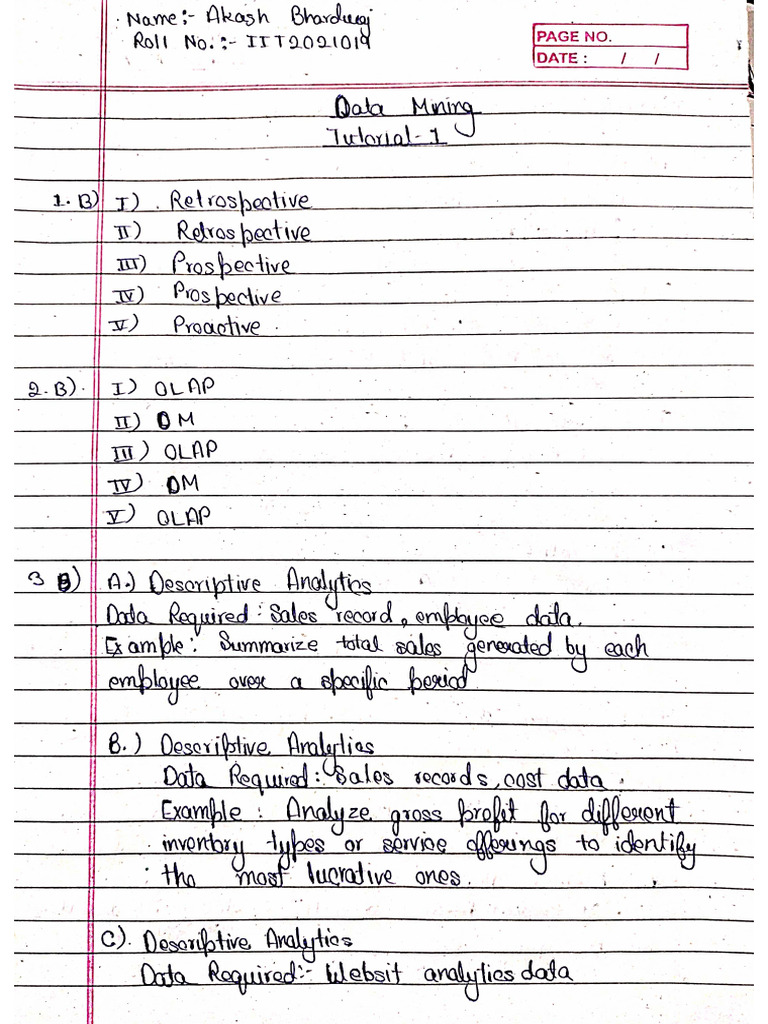 Name:- Akash Bhardwaj
Roll No.:- IIT2021019
PAGE NO.
DATE : / /
Data Mining
Tutorial-1
1.B) I) . Retrospective
II) Retrospective
III) Prospective
IV) Prospective
V) Proactive .
2.B). I) OLAP
II) DM
III) OLAP
IV) DM
V) OLAP
3 B) A.) Descriptive Analytics
Data Required: Sales record, employee data.
Example: Summarize total sales generated by each
employee over a specific period
B.) Descriptive Analytics
Data Required: Sales records, cost data .
Example : Analyze gross profit for different
inventory types or service offerings to identify
the most lucrative ones.
C). Descriptive Analytics
Data Required:- Websit analytics data